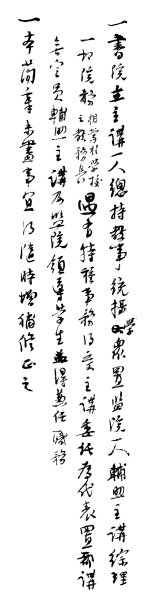 一書院立主講一人總持教事了統攝學衆置監院一人輔助主講綜理
一切院務相當於學校之教務長遇有特種事務得受主講委託爲代表置都講
無定員輔助主講及監院領導学生並得兼任職務
一本簡章未盡事宜得隨時增補修正之